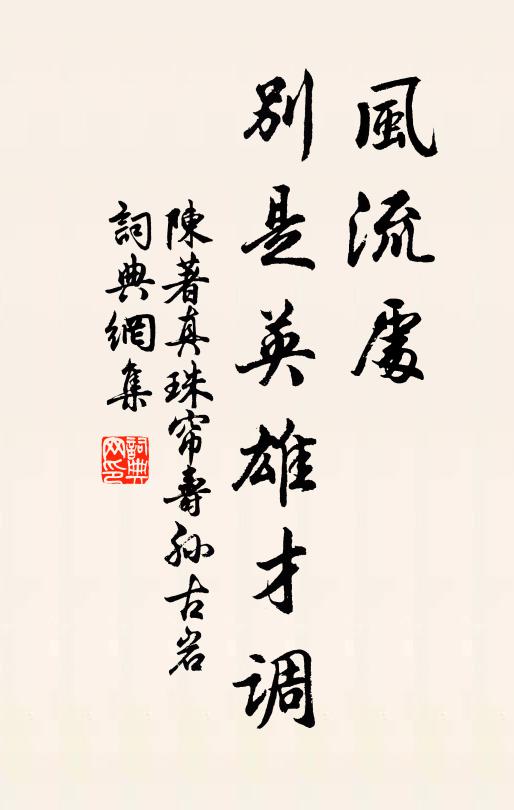 風流處
別是英雄才調
陳著真珠帘壽孙古岩
詞典網集
詞典
网印